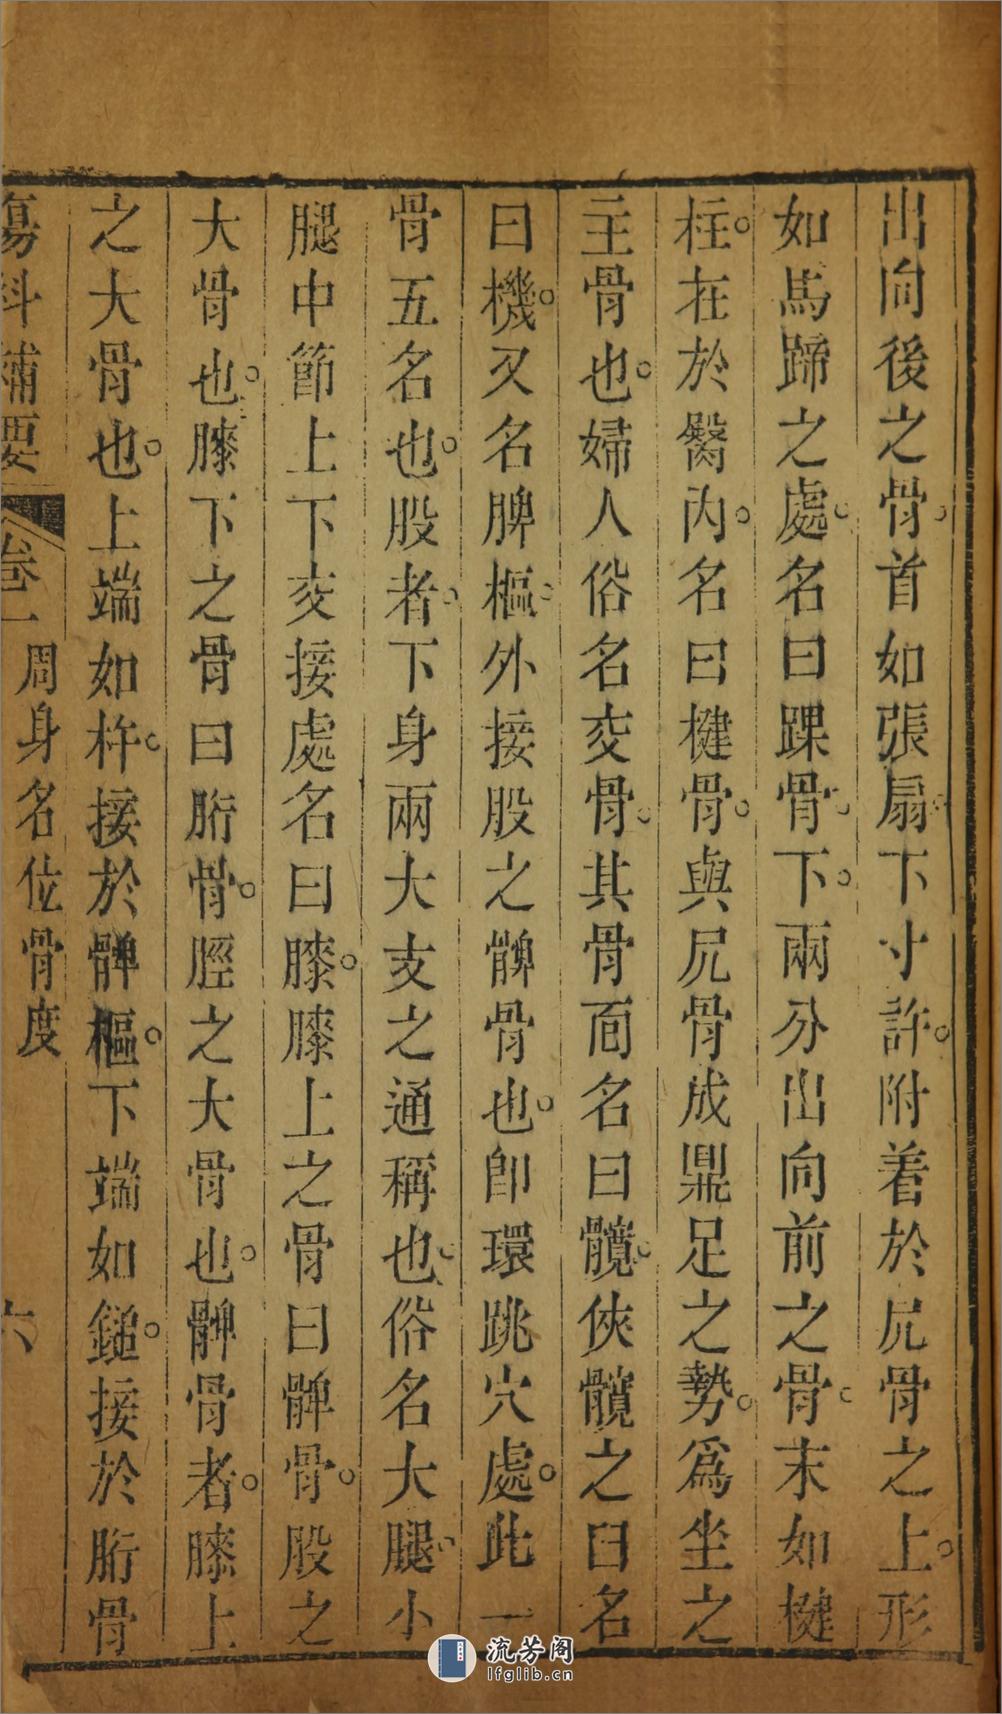 出向後之骨首如張扇下寸許附着於尻骨之上形
如馬蹄之處名曰踝骨下兩分出向前之骨末如楗
柱在於臀內名曰楗骨與尻骨成鼎足之勢爲坐之
主骨也婦人俗名交骨其骨面名曰髖俠髖之臼名
曰機又名脾樞外接股之髀骨也即環跳穴處此一
骨五名也股者下身兩大支之通稱也俗名大腿小
腿中節上下交接處名曰膝膝上之骨曰髀骨股之
大骨也膝下之骨曰胻骨脛之大骨也髀骨者膝上
之大骨也上端如杵接於髀樞下端如鎚接於胻骨
傷科補要 卷一 周身名位骨度 六
流芳阁
lfglib.cn